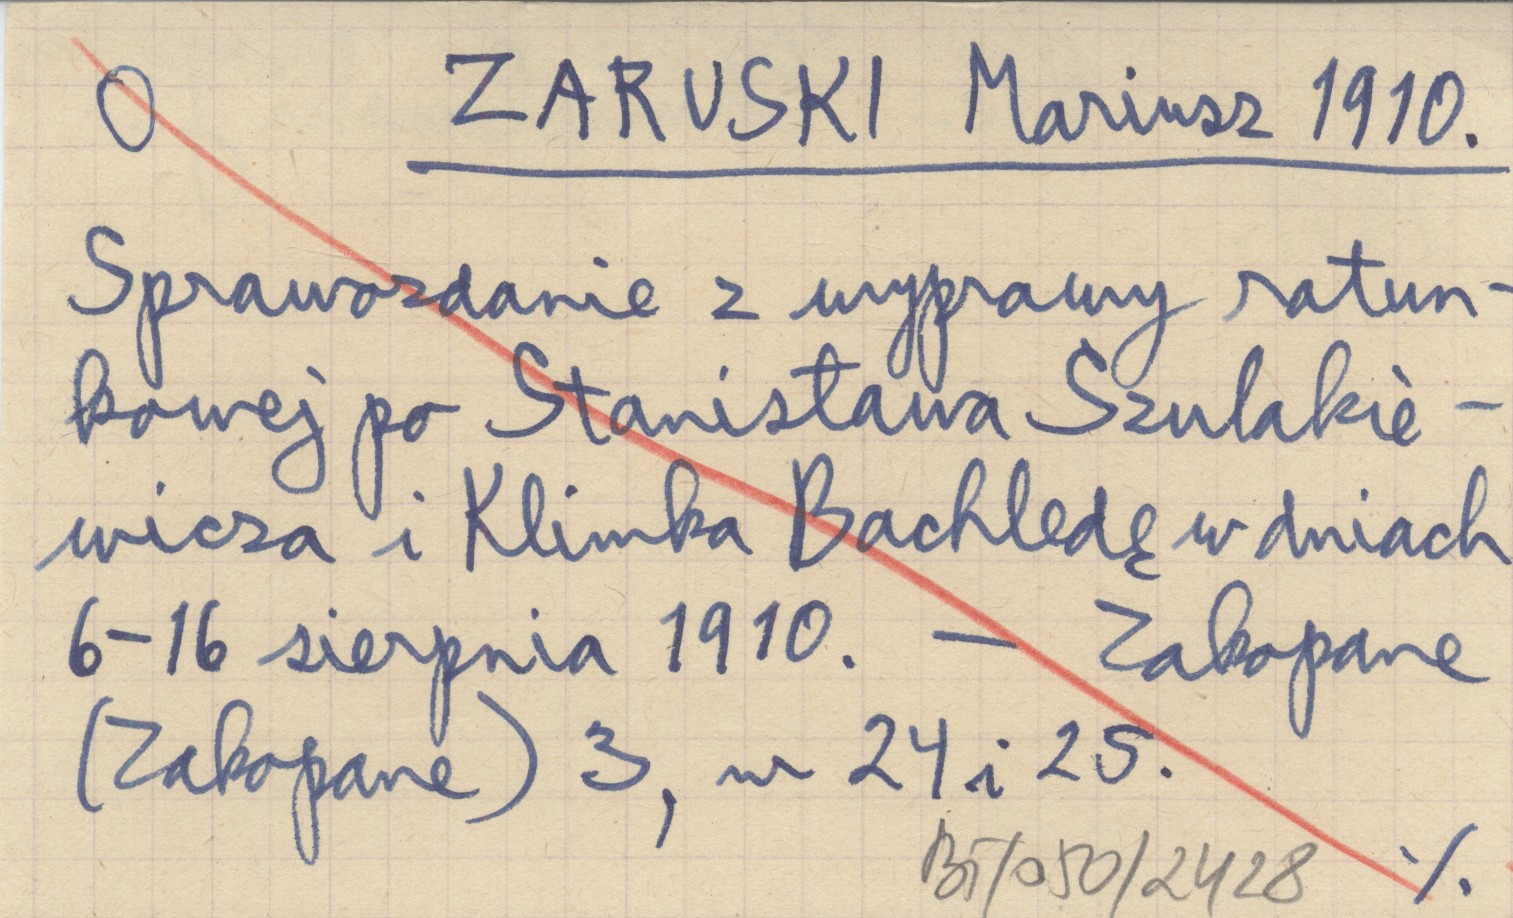 O ZARUSKI Mariusz 1910.
Sprawozdanie z wyprawy ratun-
kowej po Stanisława Szulakie-
wicza i Klimka Bachledę w dniach
6-16 sierpnia 1910. — Zakopane
(Zakopane) 3, nr 24 i 25.
BT/050/2428 ./.